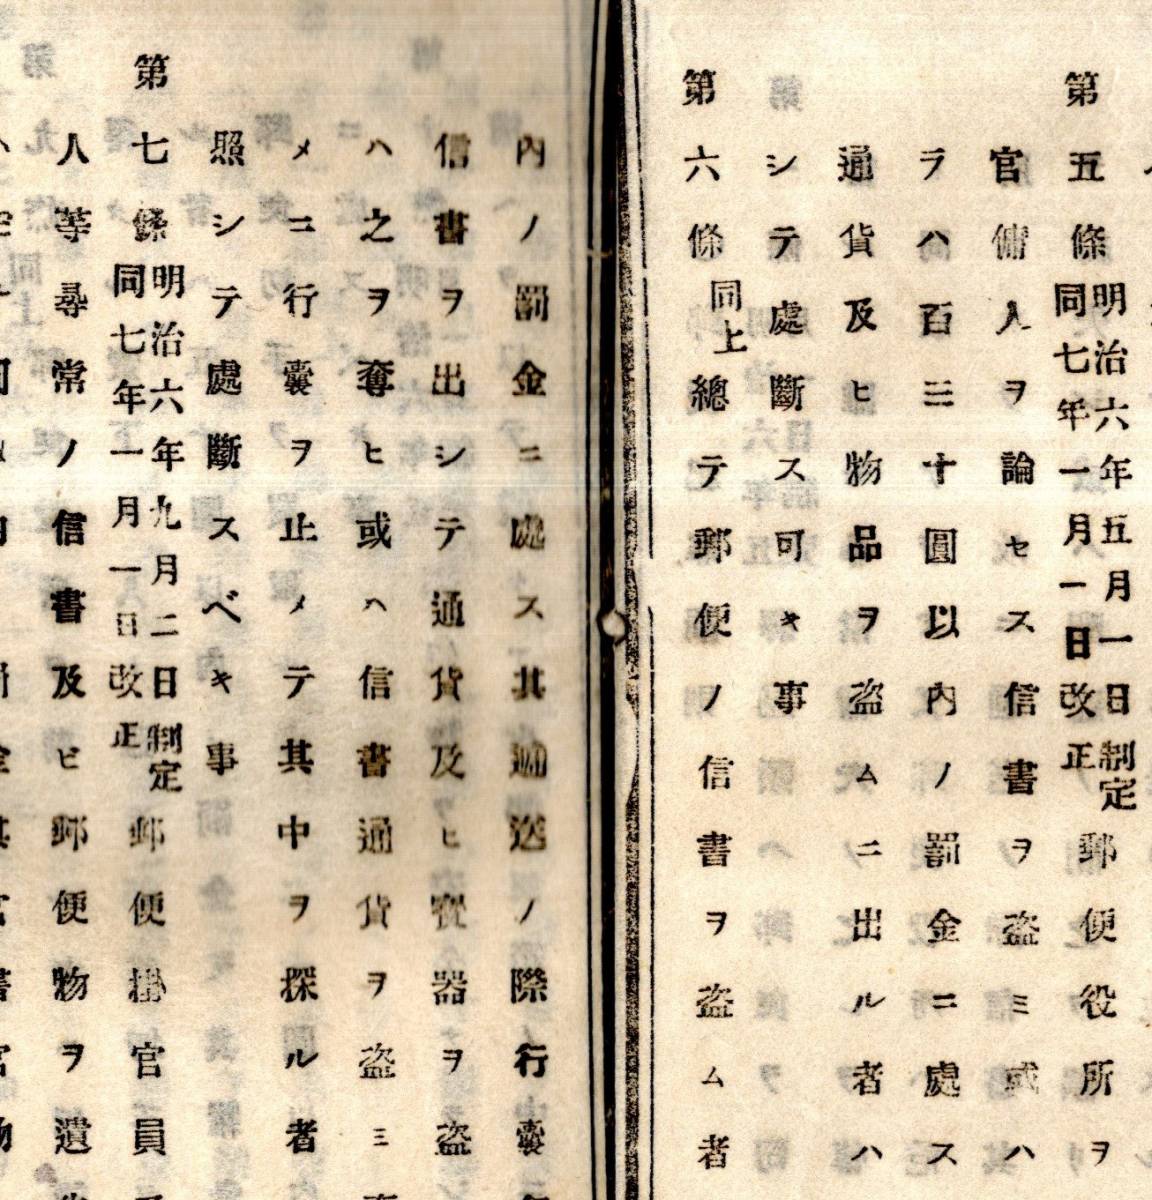 第五條明治六年五月一日制定同七年一月一日改正郵便役所ヲ
官傭人ヲ論セス信書ヲ盗ミ或ハ
ラハ百三十圓以內ノ罰金ニ處ス
通貨及ヒ物品ヲ盗ムニ出ル者ハ
シテ處斷ス可キ事
第六條同上總テ郵便ノ信書ヲ盗ム者
內ノ罰金ニ處ス其遞送ノ際行囊
信書ヲ出シテ通貨及ヒ寳器ヲ盗
ハ之ヲ奪ヒ或ハ信書通貨ヲ盗ミ
メニ行囊ヲ止メテ其中ヲ探ル者
照シテ處斷スベキ事
第七條明治六年九月二日制定同七年一月一日改正郵便掛官員
人等尋常ノ信書及ビ郵便物ヲ遺